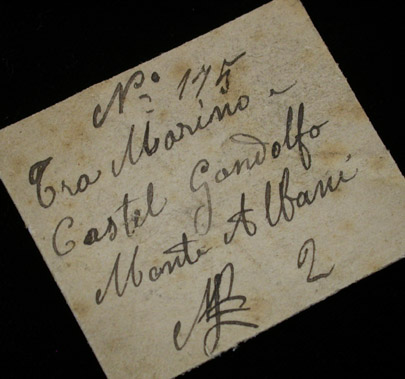 No. 175
Tra Marino e
Castel Gondolfo
Monti Albani
2